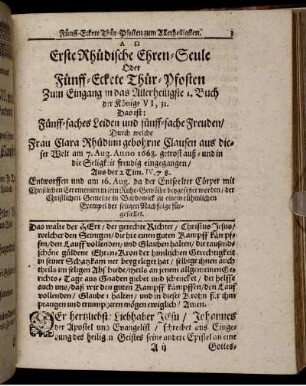 Fünff-Eckete Thür-Pfosten zum Allerheiligsten. 3
A Ω
Erste Rhüdische Ehren-Seule
Oder
Fünff-Eckete Thür-Pfosten
Zum Eingang in das Allerheiligste 1. Buch
der Könige VI, 31.
Das ist:
Fünff-faches Leiden und fünff-fache Freuden/
Durch welche
Frau Clara Rhüdium gebohrne Clausen aus die-
ser Welt am 7. Aug. Anno 1663. getrost auß- und in
die Seligkeit freudig eingegangen/
Aus der 2 Tim. IV, 7 8.
Entworffen und am 16. Aug. da der Entseelter Cörper mit
Christlichen Ceremonien in sein Ruhe-Gewölbe beygesetzet worden/ der
Christlichen Gemeine in Bardowick zu einem rühmlichen
Exempel der seligen Nachfolge für-
gestellet.
Das walte der HErr/ der gerechte Richter/ Christus Jesus/
welcher den Seinigen/ die hie einen guten Kampff kämpf-
fen/ den Lauff vollenden/ und Glauben halten/ die tausend-
schöne güldene Ehren-Kron der himlischen Gerechtigkeit
in seiner Schatzkammer beygeleget hat/ selbige ihnen auch
theils am seligen Absterben/ theils an jenem allgemeinen Ge-
richts-Tage aus Gnaden giebet und schencket/ der helffe
auch uns/ daß wir den guten Kampff kämpffen/ den Lauff
vollenden/ Glauben halten/ und in dieser Krohn für ihm
prangen und triumphieren mögen ewiglich? Amen.
DEr hertzliebste Liebhaber Jesu/ Johannes
der Apostel und Evangelist/ schreibet aus Einge-
bung des heiligen Geistes seine andere Epistel an eine
A ij Gottes-